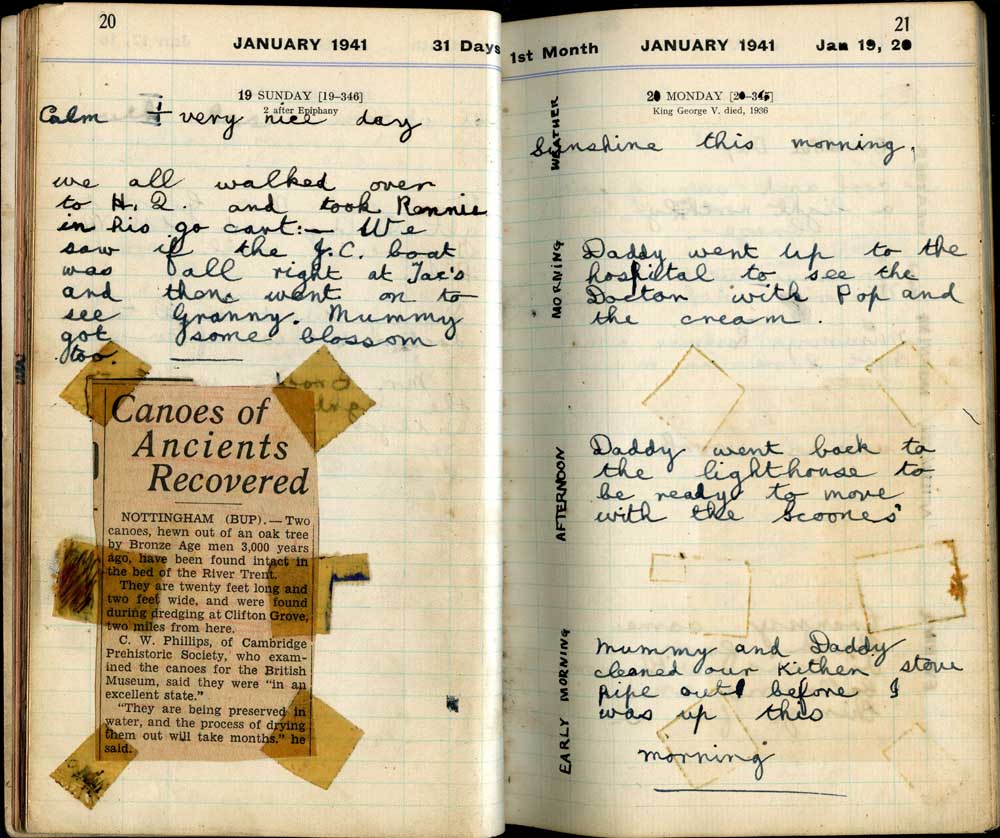 20
JANUARY 1941 31 Days
19 SUNDAY [19–346]
2 after Epiphany
Calm & very nice day
we all walked over
to H.Q. and took Rennie
in his go cart:— We
saw if the J.C. boat
was all right at Tac's
and then went on to
see Granny. Mummy
got some blossom
too.
Canoes of
Ancients
Recovered
NOTTINGHAM (BUP).—Two
canoes, hewn out of an oak tree
by Bronze Age men 3,000 years
ago, have been found intact in
the bed of the River Trent.
They are twenty feet long and
two feet wide, and were found
during dredging at Clifton Grove,
two miles from here.
C. W. Phillips, of Cambridge
Prehistoric Society, who exam-
ined the canoes for the British
Museum, said they were "in an
excellent state."
"They are being preserved in
water, and the process of drying
them out will take months," he
said.
21
1st Month JANUARY 1941 Jan 19, 20
20 MONDAY [20–345]
King George V. died, 1936
WEATHER
Sunshine this morning,
MORNING
Daddy went up to the
hospital to see the
Doctor with Pop and
the cream.
AFTERNOON
Daddy went back to
the lighthouse to
be ready to move
with the Scoones'
EARLY MORNING
Mummy and Daddy
cleaned our Kithen stove
pipe out before I
was up this
morning